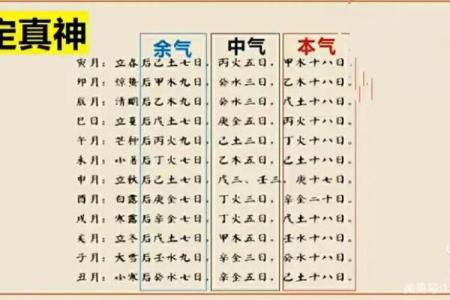 定真神
余气 中气 本气
寅月：立春后己土七日，丙火五日，甲木十八日。
卯月：惊蛰后甲木九日，癸水三日，乙木十八日。
辰月：清明后乙木九日，癸水三日，戊土十八日。
巳日：立夏后戊土七日，庚金五日，丙火十八日。
午月：芒种后丙火九日，己土三日，丁火十八日。
未月：小暑后丁火七日，乙木五日，己土十八日。
申月：立秋后己土七日，戊三、壬三，庚十七日。
酉月：白露后庚金七日，丁火三日，辛金二十日。
戌月：寒露后辛金七日，丁火五日，戊土十八日。
亥月：立冬后戊土七日，甲木五日，壬水十八日。
子月：大雪后壬水九日，辛金三日，癸水十八日。
丑月：小寒后癸水七日，辛金五日，己土十八日。